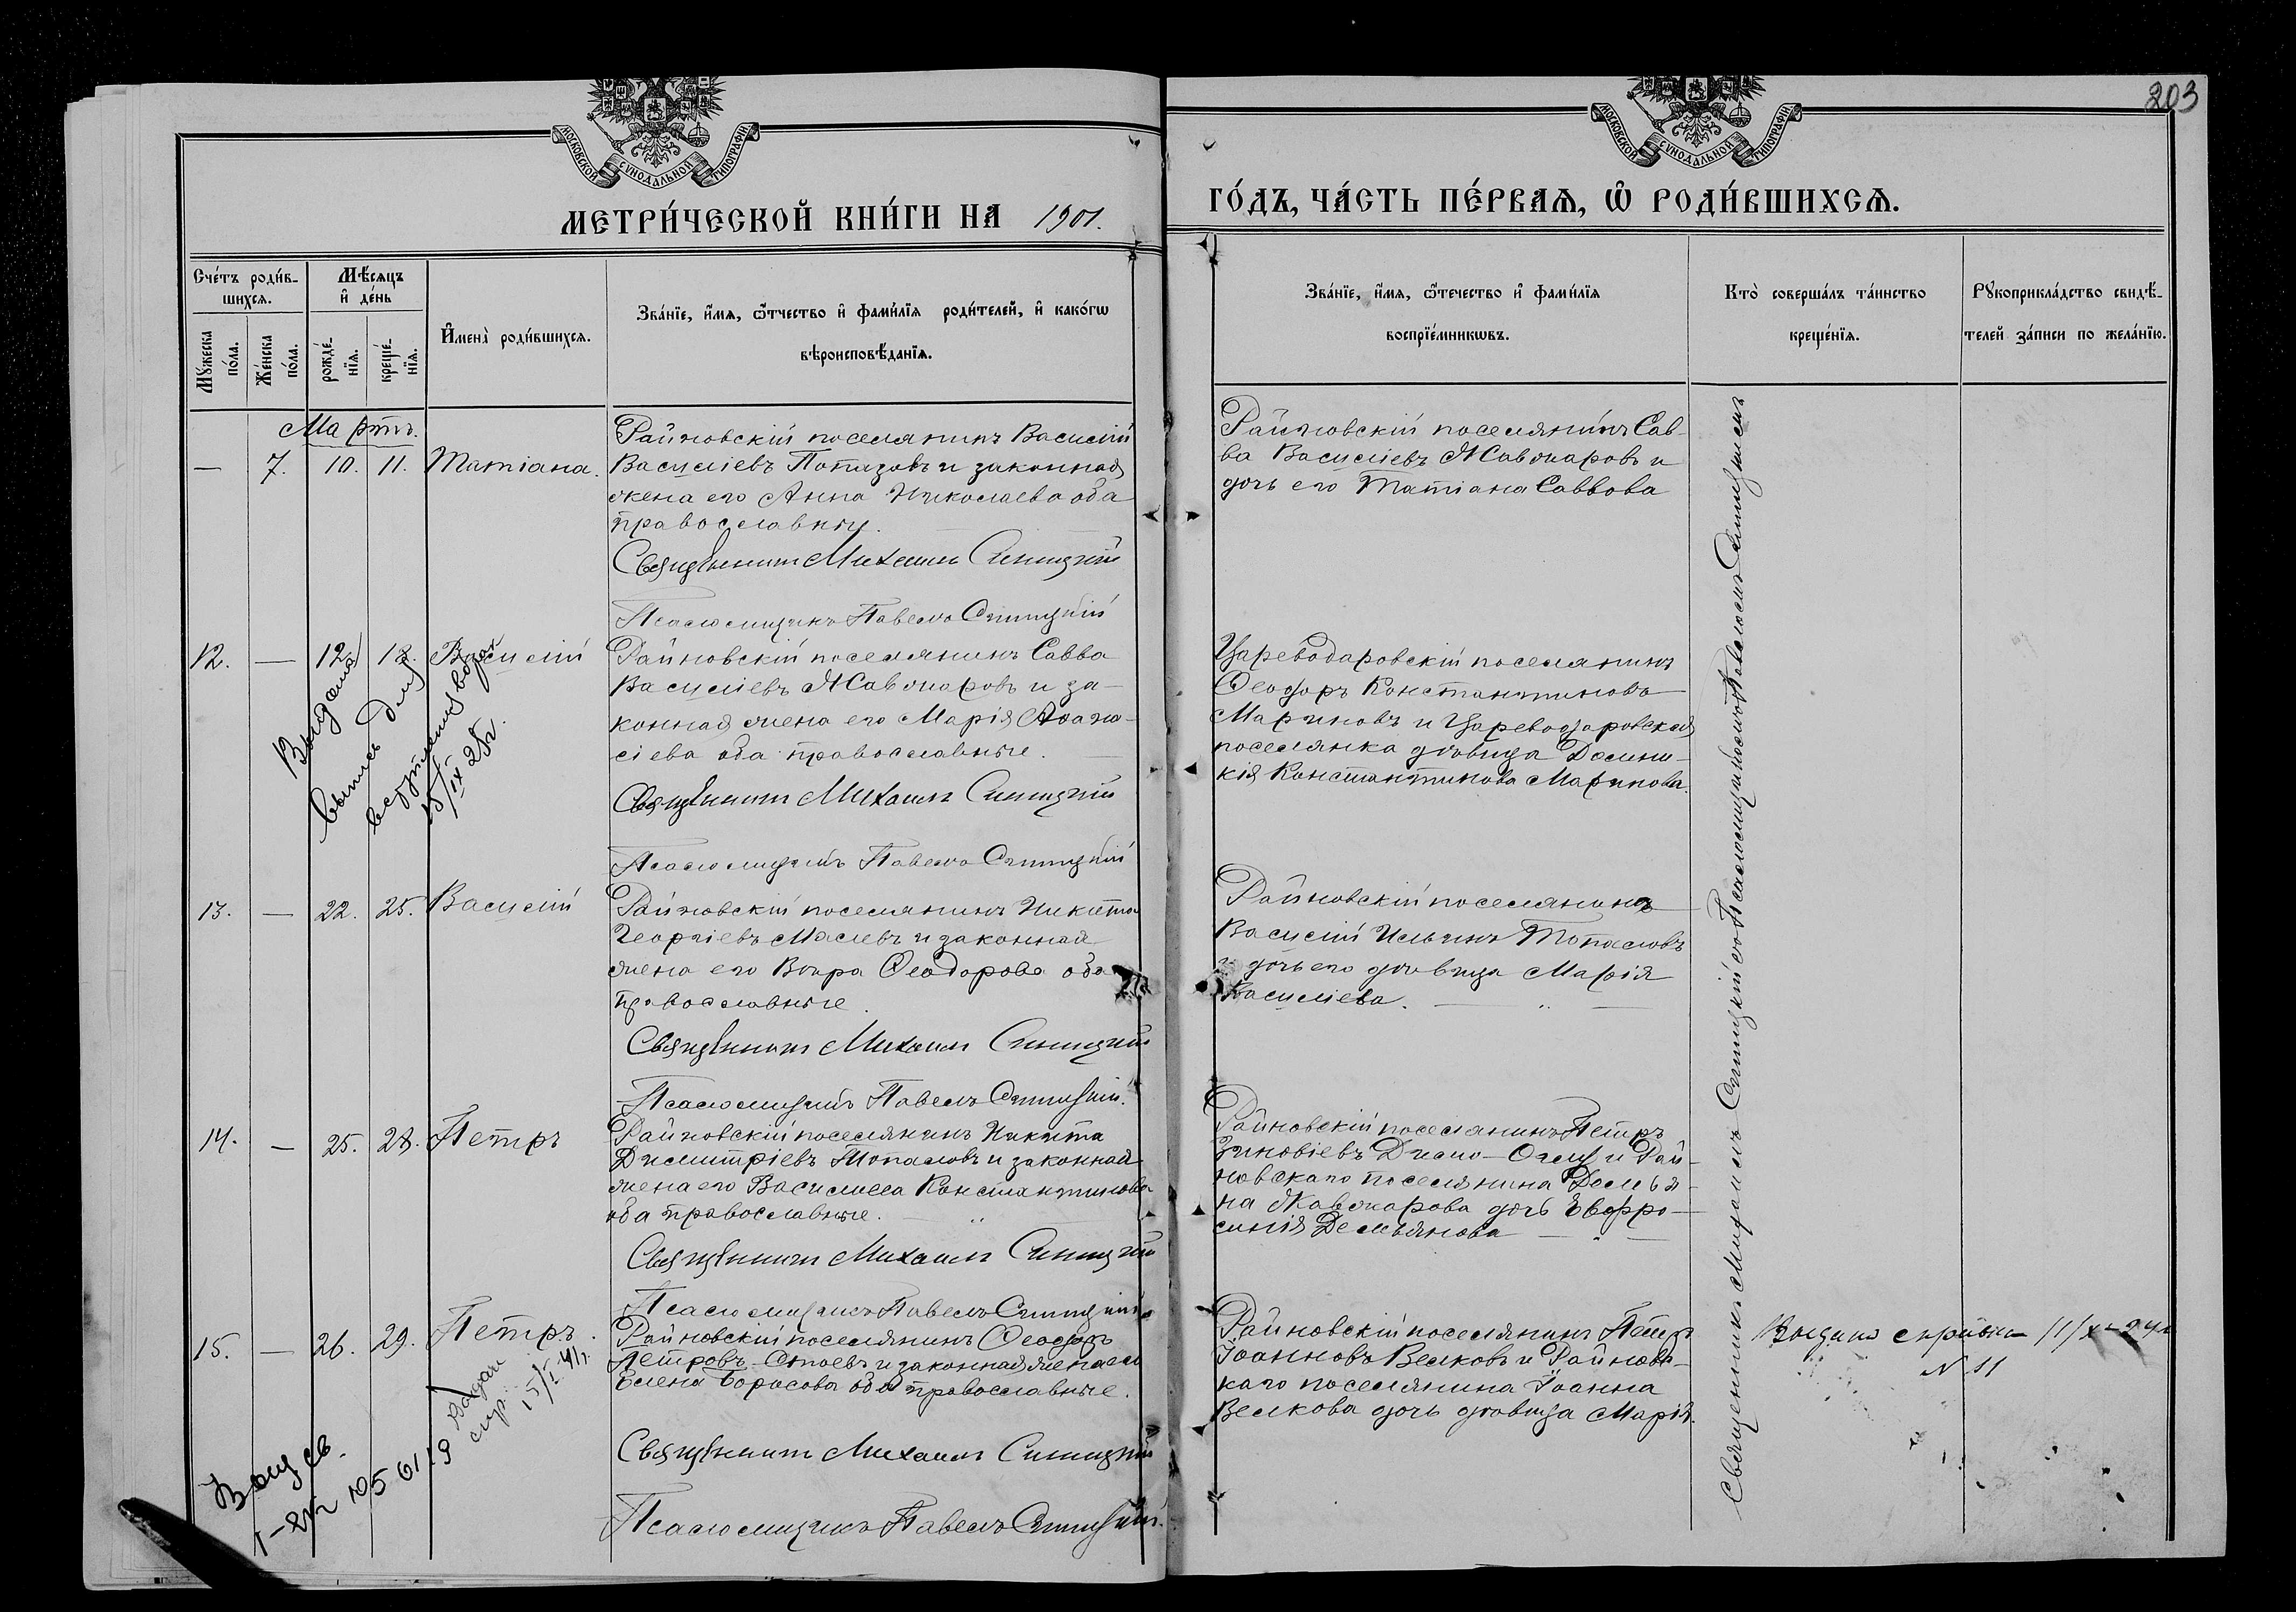 203
МОСКОВСКОЙ СУНОДАЛЬНОЙ ТИПОГРАФІИ
МОСКОВСКОЙ СУНОДАЛЬНОЙ ТИПОГРАФІИ
МЕТРИ́ЧЕСКОЙ КНИ́ГИ НА 1901.
ГО́ДЪ, ЧА́СТЬ ПЕ́РВАѦ, Ѡ҆ РОДИ́ВШИХСѦ.
Сче́тъ роди́в-
шихсѧ.
Мꙋ́жеска
по́ла.
Же́нска
по́ла.
Мѣ́сѧцъ
и҆ де́нь
рожде́-
нїѧ.
креще́-
нїѧ.
И҆мена̀ роди́вшихсѧ.
Зва́нїе, и҆́мѧ, ѻ҆́тчество и҆ фами́лїѧ роди́телей, и҆ како́гѡ
вѣроисповѣ́данїѧ.
Зва́нїе, и҆́мѧ, ѻ҆те́чество и҆ фами́лїѧ
воспрїе́мникѡвъ.
Кто̀ соверша́лъ та́инство
креще́нїѧ.
Рꙋкоприкла́дство свидѣ́-
телей за́писи по жела́нїю.
Мартъ.
— 7. 10. 11. Татіана.
Райновскій поселянинъ Василій
Василіевъ Топазовъ и законная
жена его Анна Николаева оба
православны.
Священникъ Михаилъ Синицкій
Псаломщикъ Павелъ Синицкій
Райновскій поселянинъ Сав-
ва Василіевъ Жавжаровъ и
дочь его Татіана Саввова
12. — 12. 18. Василій
Выдана
выпись для
15/IX 28г.
Райновскій поселянинъ Савва
Василіевъ Жавжаровъ и за-
конная жена его Марія Афана-
сіева оба православные.
Священникъ Михаилъ Синицкій
Псаломщикъ Павелъ Синицкій
Цареводаровскій поселянинъ
Ѳеодоръ Константиновъ
Мариновъ и Цареводаровская
поселянка дѣвица Домни-
кія Константинова Маринова.
13. — 22. 25. Василій
Райновскій поселянинъ Никита
Георгіевъ Маслевъ и законная
жена его Вѣра Ѳеодорова оба
православные.
Священникъ Михаилъ Синицкій
Псаломщикъ Павелъ Синицкій.
Райновскій поселянинъ
Василій Ильинъ Топаловъ
и дочь его дѣвица Марія
Василіева.
14. — 25. 28. Петръ
Райновскій поселянинъ Никита
Димитріевъ Топаловъ и законная
жена его Василисса Константинова
оба православные.
Священникъ Михаилъ Синицкій
Псаломщикъ Павелъ Синицкій
Райновскій поселянинъ Петръ
Зиновіевъ Димо-Оглу и Рай-
новскаго поселянина Демья-
на Жавжарова дочь Евфро-
синія Демьянова
15. — 26. 29. Петръ.
Выдан
спр.
15/I-41г.
105 6119
Райновскій поселянинъ Ѳеодоръ
Петровъ Стоевъ и законная жена его
Елена Борисова оба православные.
Священникъ Михаилъ Синицкій
Псаломщикъ Павелъ Синицкій.
Райновскій поселянинъ Петръ
Іоанновъ Велковъ и Райновс-
каго поселянина Іоанна
Велкова дочь дѣвица Марія.
Священникъ Михаилъ Синицкій съ Псаломщикомъ Павломъ Синицкимъ
Выдана справка
N 11